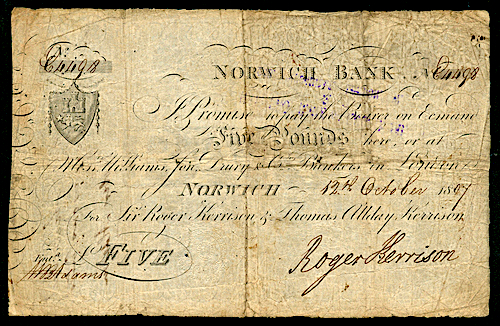 No.
C4498
NORWICH BANK No. C4498
I Promise to pay the Bearer on Demand
Five Pounds here, or at
Williams, Son, Drury & Bankers in London
NORWICH 12th October 1807
For Sir Roger Kerrison & Thomas Allday Kerrison
£ FIVE
Roger Kerrison
Entd.
Adams